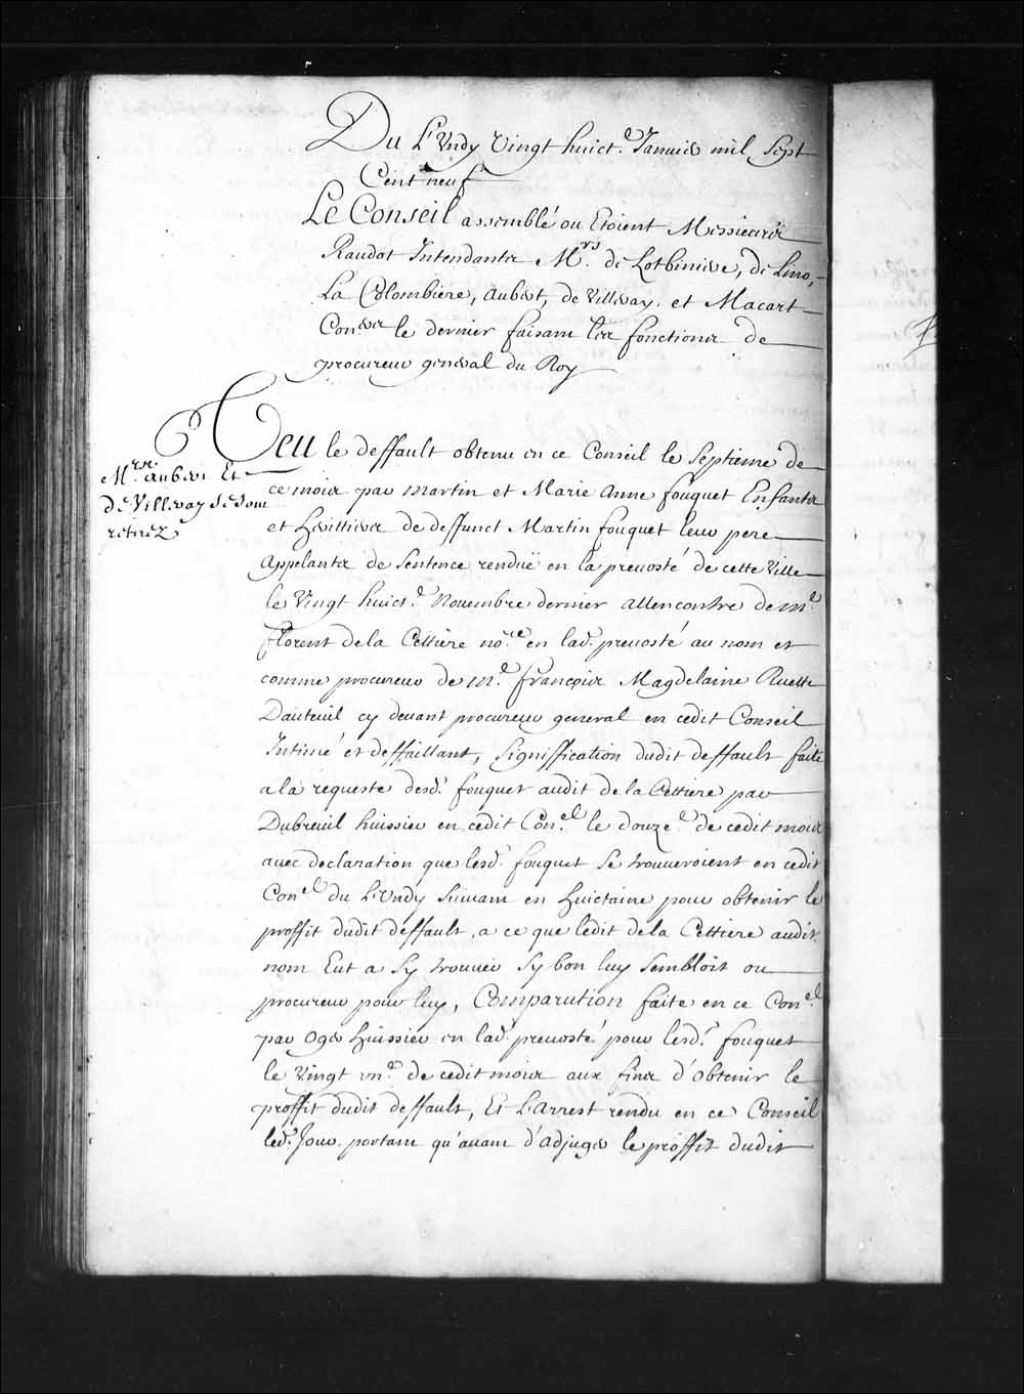 Du L'Undy Vingt huict.e Januier mil Sept
Cent neuf
Le Conseil assemblé ou Etoient Messieurs
Raudot Intendants Mrs. de Lotbiniere, de Lino,
La Colombiere, aubert, de Villeray. et Macart
Coners le dernier faisant les fonctions de
procureur general du Roy
Veu le deffault obtenu en ce Conseil le Septieme de
Mrs. aubert Et
de Villeray se sont
retirez
ce mois par Martin et Marie Anne fouquet Enfants
et Heritiers de deffunct Martin fouquet leur pere
Appelants de Sentence renduë en la preuosté de cette Ville
le Vingt huict.e Nouembre dernier allencontre de me.
florent de la Cettiere no.re en lad. preuosté au nom et
comme procureur de Me. françois Magdelaine Ruette
Dauteuil cy deuant procureur general en cedit Conseil
Intimé et deffaillant, Signiffication dudit deffault faite
a la requeste desd. fouquet audit de la Cettiere par
Dubreuil huissier en cedit Con.el le douze.e de cedit mois
auec declaration que lesd. fouquet se trouueroient en cedit
Conel du L'Undy Suiuant en huictaine pour obtenir le
proffit dudit deffault, a ce que ledit de la Cettiere audit
nom Eut a Sy trouuer Sy bon luy Sembloit ou
procureur pour luy, Comparution faite en ce Con.el
par Oger huissier en lad. preuosté pour lesd. fouquet
le Vingt vn.e de cedit mois aux fins d'obtenir le
proffit dudit deffault, Et L'Arrest rendu en ce Conseil
led. Jour. portant qu'auant d'adjuger le proffit dudit